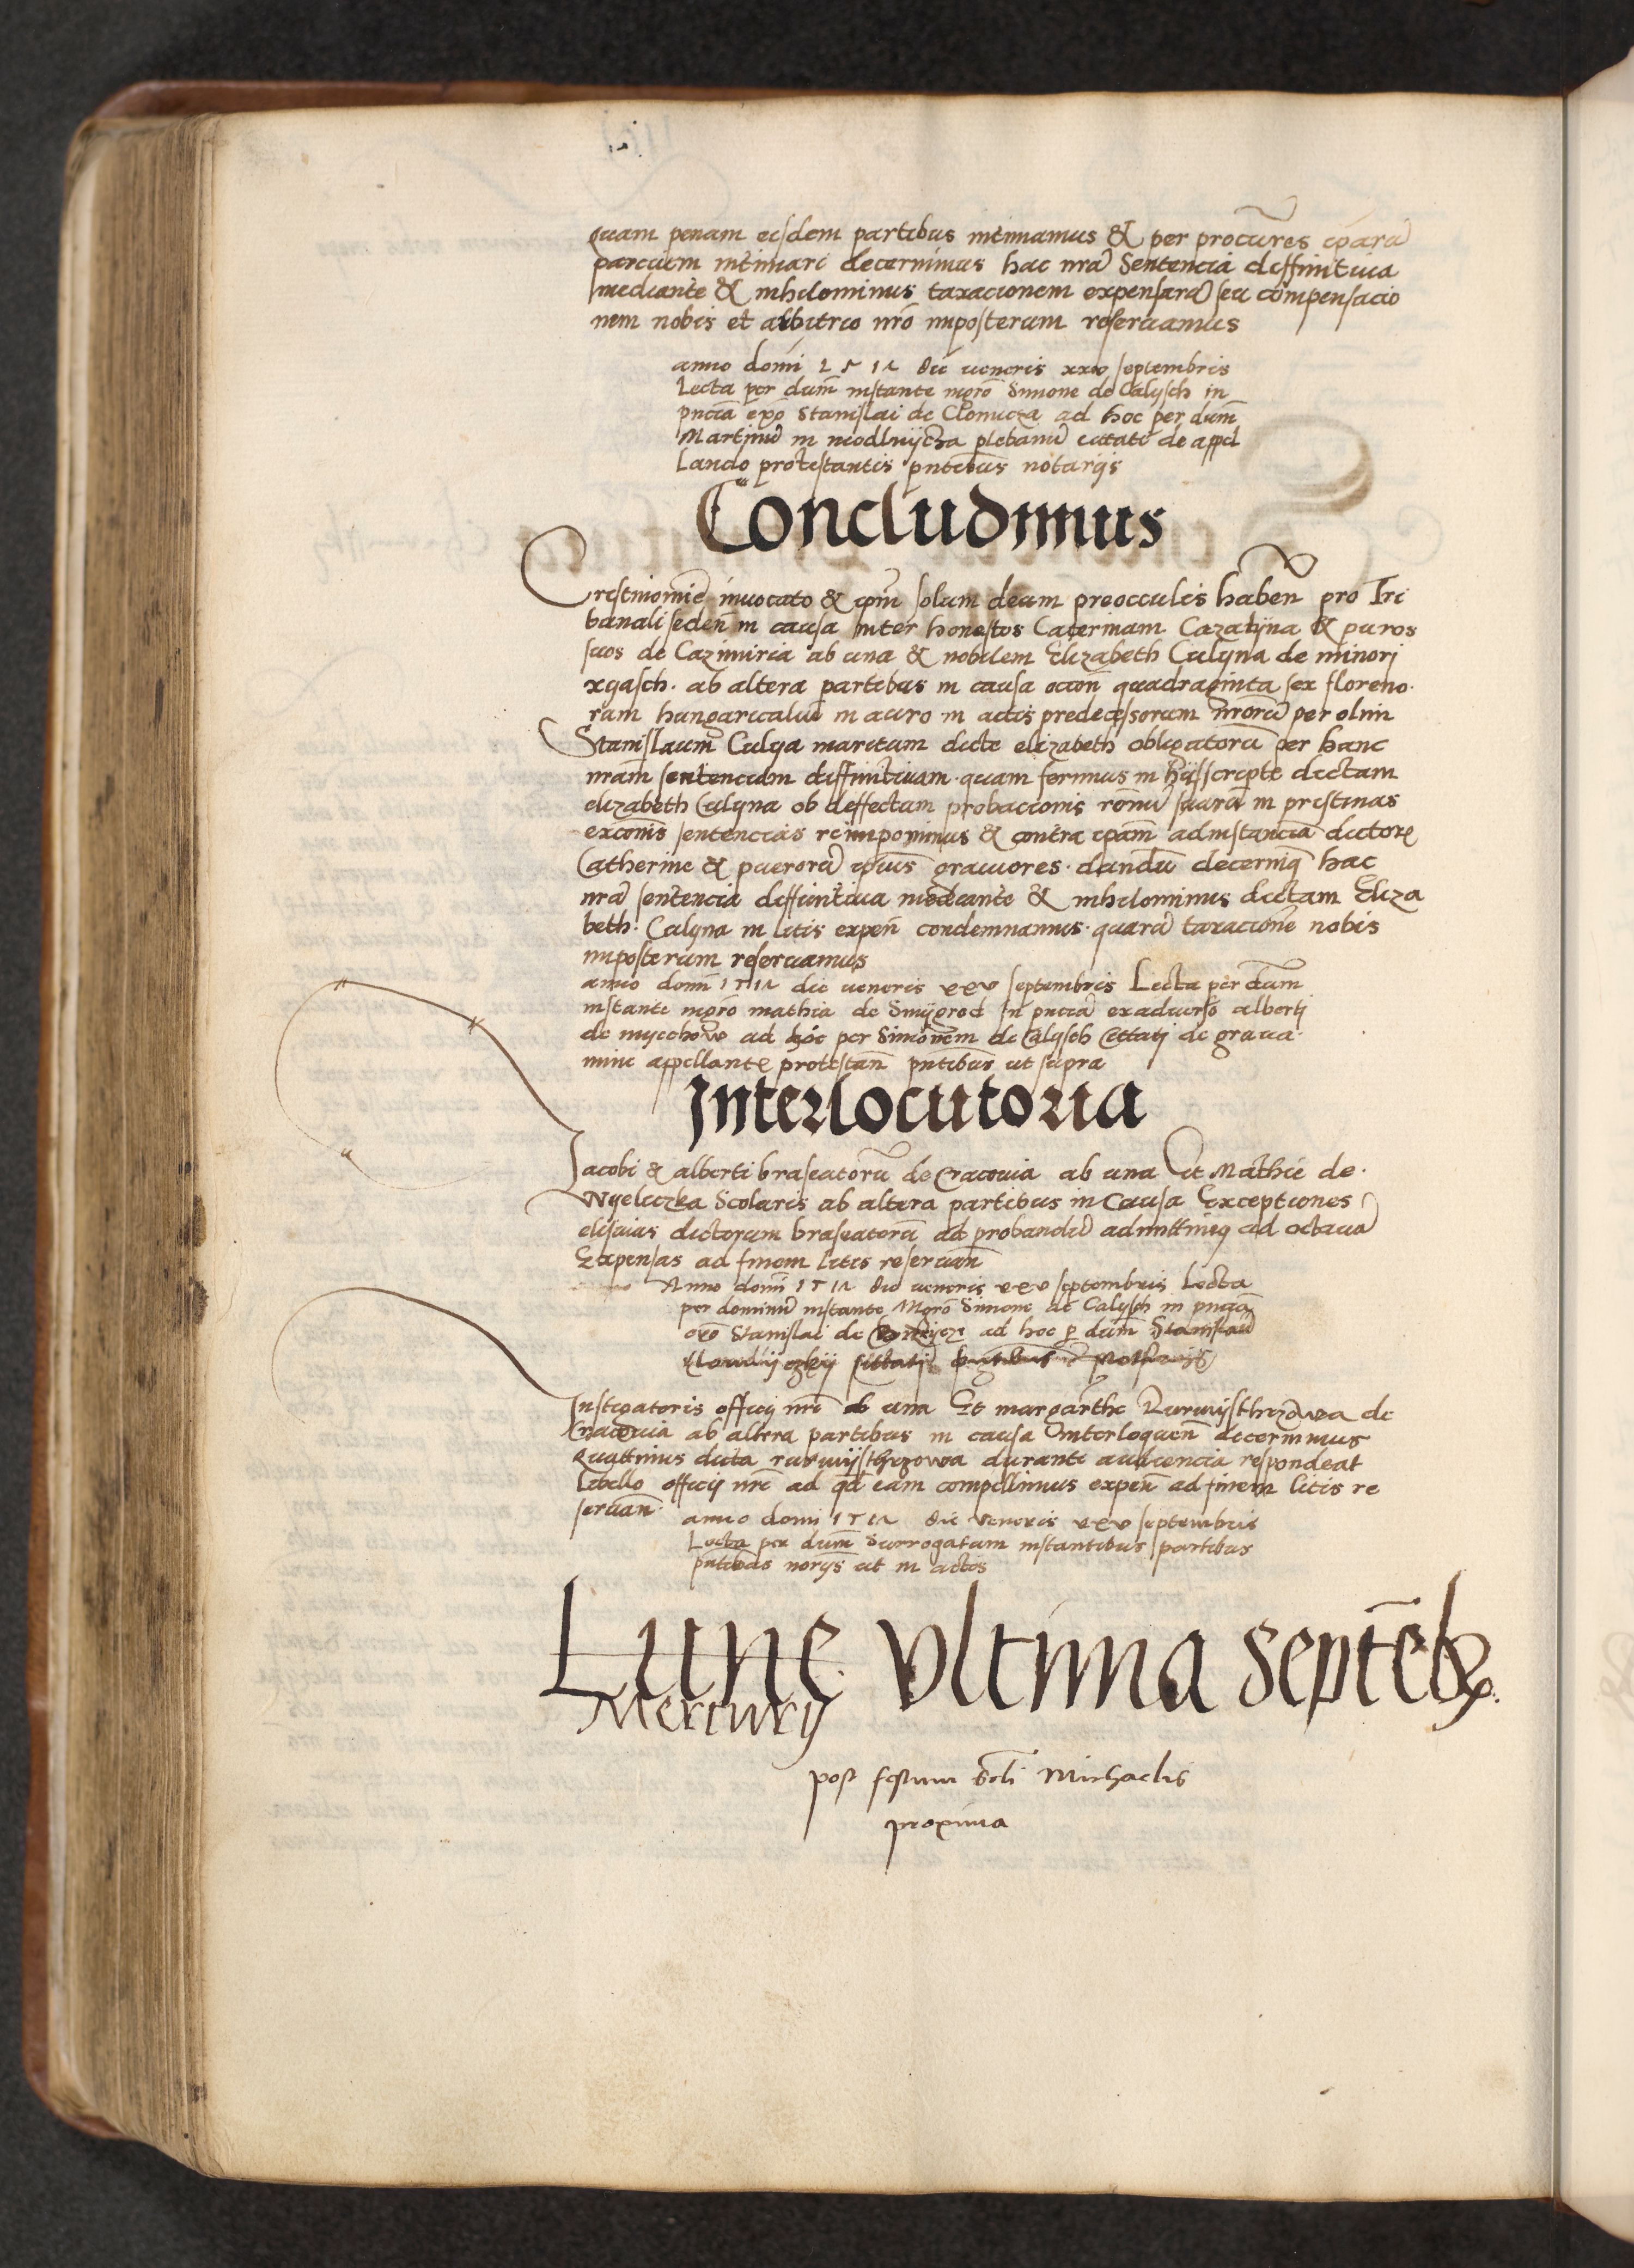 quam penam eisdem partibus intimamus & per procures ipāru
parcium intimari decernimus hac nrā Sentencia diffinitiua
mediante & nihilominus taxacionem expensarū seu compensacio
nem nobis et arbitrio nrō imposterum reseruamus
anno domi 1512 die ueneris xxv septembris
Lecta per dūm instante mgrō Simone de Calysch in
pnciā exō Stanislai de ad hoc per dūm
Martinū in modlnijcza plebanū citati de appel
lando protestantis pntibus notarijs
Concludimus
Cristi nomīe inuocato & ipm solum deum preocculis habeñ pro Tri
bunali sedeñ in causa inter honestos Caterinam Cazatijna & pueros
suos de Cazimiria ab una & nobilem Elizabeth Culijna de minori
xyasch. ab altera partibus in causa occoñ quadraginta sex floreno
rum hungaricaliū in auro in actis predecessorum nrorū per olim
Stanislaum Culya maritum dicte elizabeth obligatorū per hanc
nram sentenciam diffinitiuam quam ferimus in hijs scriptis dictam
elizabeth Culijna ob deffectum probacionis suarū in pristinas
exconis sentencias reimponimus & contra ipam ad instanciā dictorꝝ
Catherine & puerorū ipius grauiores dandū decernimꝰ hac
nrā sentencia diffinitiua mediante & nihilominus dictam Eliza
beth Culijna in litis expeñ condemnamus quarū taxacionē nobis
imposterum reseruamus
anno domi 1512 die ueneris xxv septembris Lecta per dūm
instante mgrō mathia de Smijgrod In pnciā ex aduerso alberti
de myechow ad hoc per Simonem de Calysch citati de graua
mine appellante protestañ pntibus ut supra
Interlocutoria
Jacobi & alberti braseatorū de Cracouia ab una Et Mathie de
Wyeliczka Scolaris ab altera partibus in Causa Exceptiones
elisiuas dictorum braseatorū ad probandū admittimꝰ ad octauā
Expensas ad finem litis reseruañ
Anno domi 1512 die ueneris xxv septembris Lecta
per dominū instante Mgrō Simone de Calysch in pnciā
Stanislai de ad hoc ꝑ dūm Stanislaū
citati pntibus Notarijs
Instigatoris officij nri ab una Et margarthe Rurmijsthrzowa de
Cracouia ab altera partibus in causa Interloqueñ decernimus
Quattinus dicta rurmijsthrzowa durante audiencia respondeat
Libello officij nri ad qd eam compellimus expeñ ad finem litis re
seruañ
anno domi 1512 die ueneris xxv septembris
Lecta per dūm Surrogatum instantibus partibus
pntibus norijs ut in actis
Lune Vltima Septēbꝶ
Mercurij
post festum Scti Michaelis
proxima